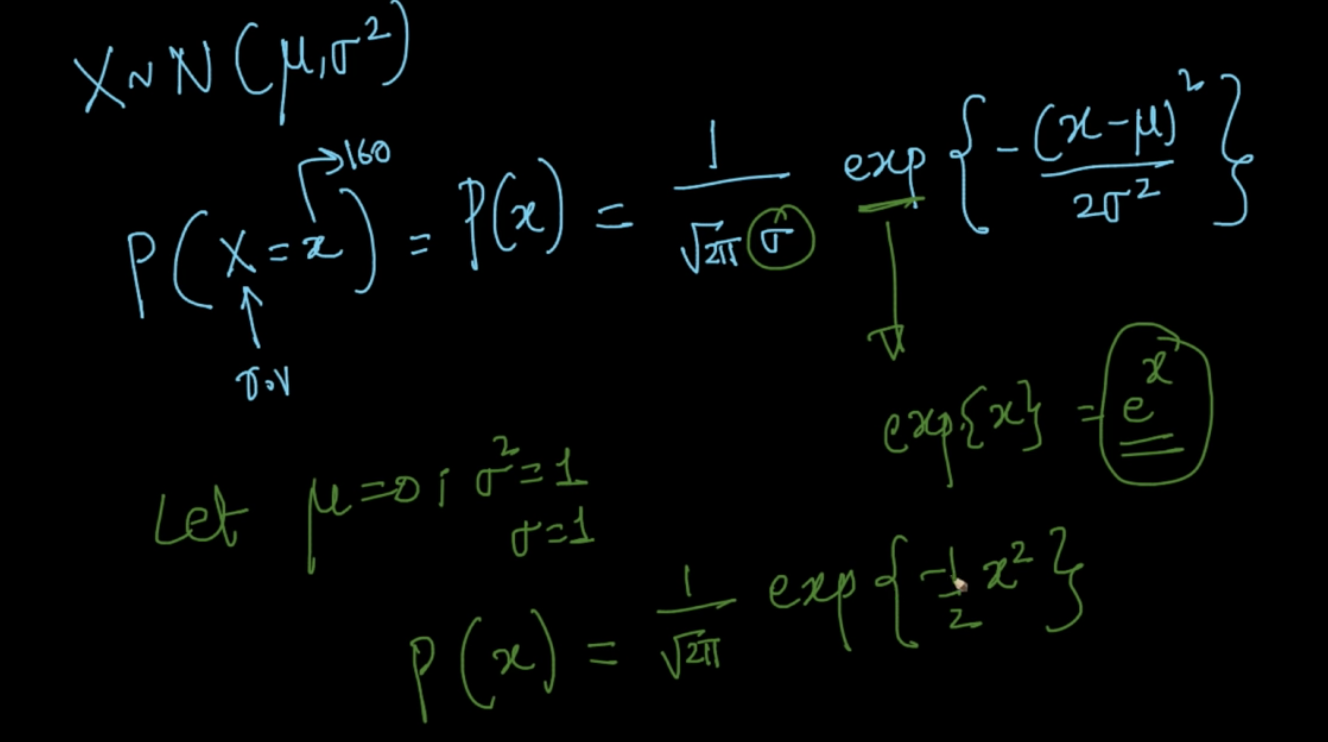 X ~ N(μ, σ²)
→ 160
P(X = x) = P(x) = 1/(√2π σ) exp{-(x-μ)²/2σ²}
r.v
exp{x} = e^x
Let μ=0; σ²=1
σ=1
P(x) = 1/√2π exp{-1/2 x²}